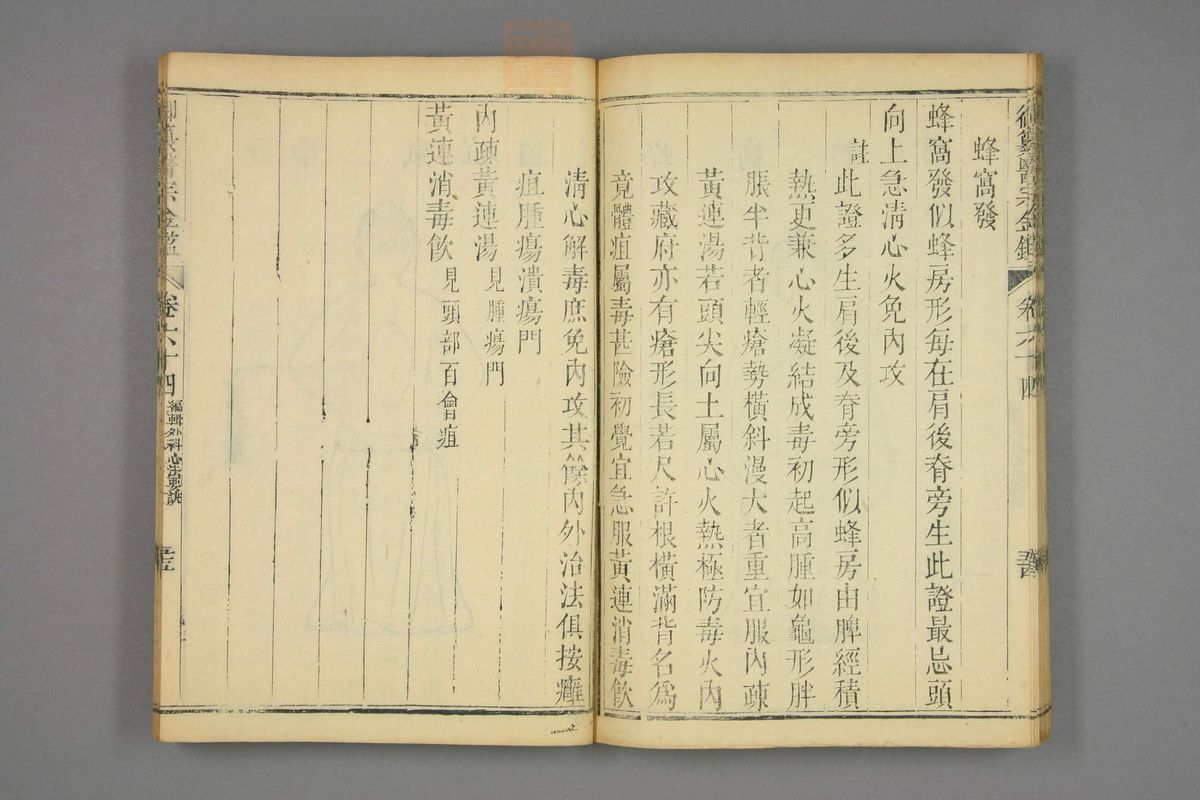 御纂醫宗金鑑 卷六十四
蜂窩發
蜂窩發似蜂房形每在肩後脊旁生此證最忌頭
向上急淸心火免內攻
註
此證多生肩後及脊旁形似蜂房由脾經積
熱更兼心火凝結成毒初起高腫如龜形胖
脹半背者輕瘡勢橫斜漫大者重宜服內疎
黃連湯若頭尖向上屬心火熱極防毒火內
攻藏府亦有瘡形長若尺許根橫滿背名為
竟體疽屬毒甚險初覺宜急服黃連消毒飮
淸心解毒庶免內攻其餘內外治法俱按癰
疽腫瘍潰瘍門
內疎黃連湯見腫瘍門
黃連消毒飮見頭部百會疽
御纂醫宗金鑑 卷六十四 編輯外科心法要訣